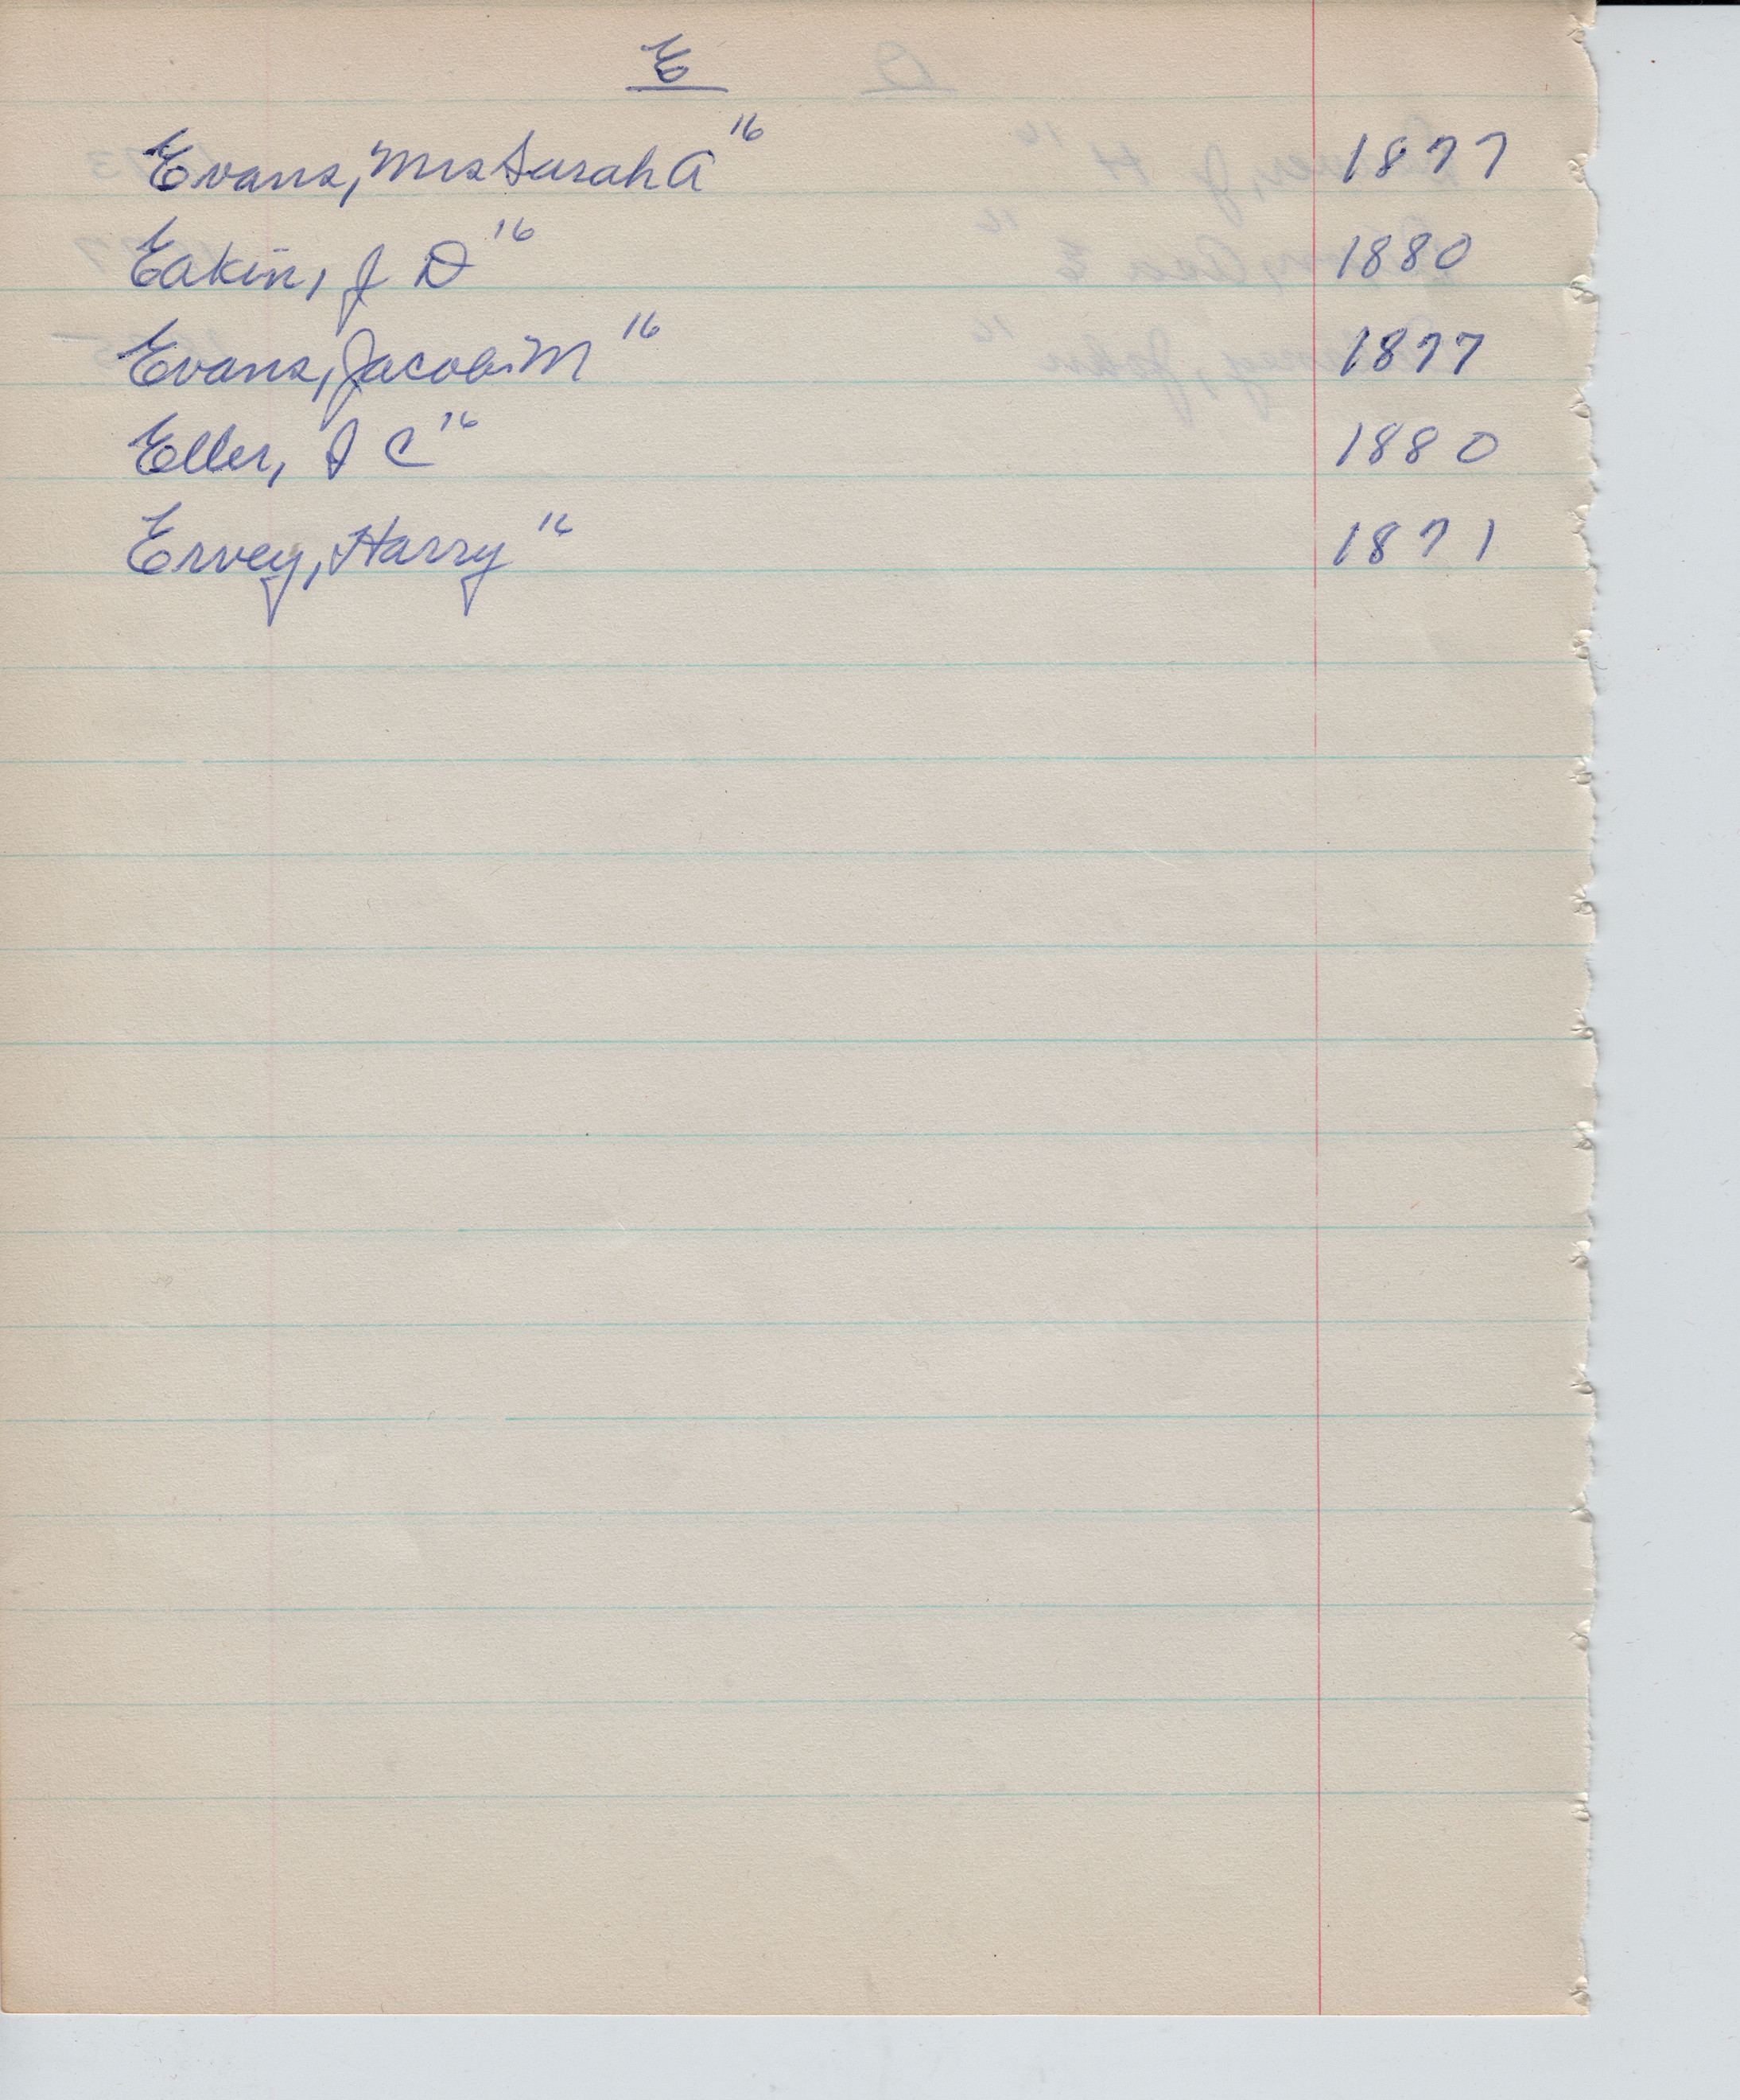 E
Evans, Mrs Sarah A 16 1877
Eakin, J D 16 1880
Evans, Jacob M 16 1877
Eller, I C 16 1880
Ervey, Harry 16 1871